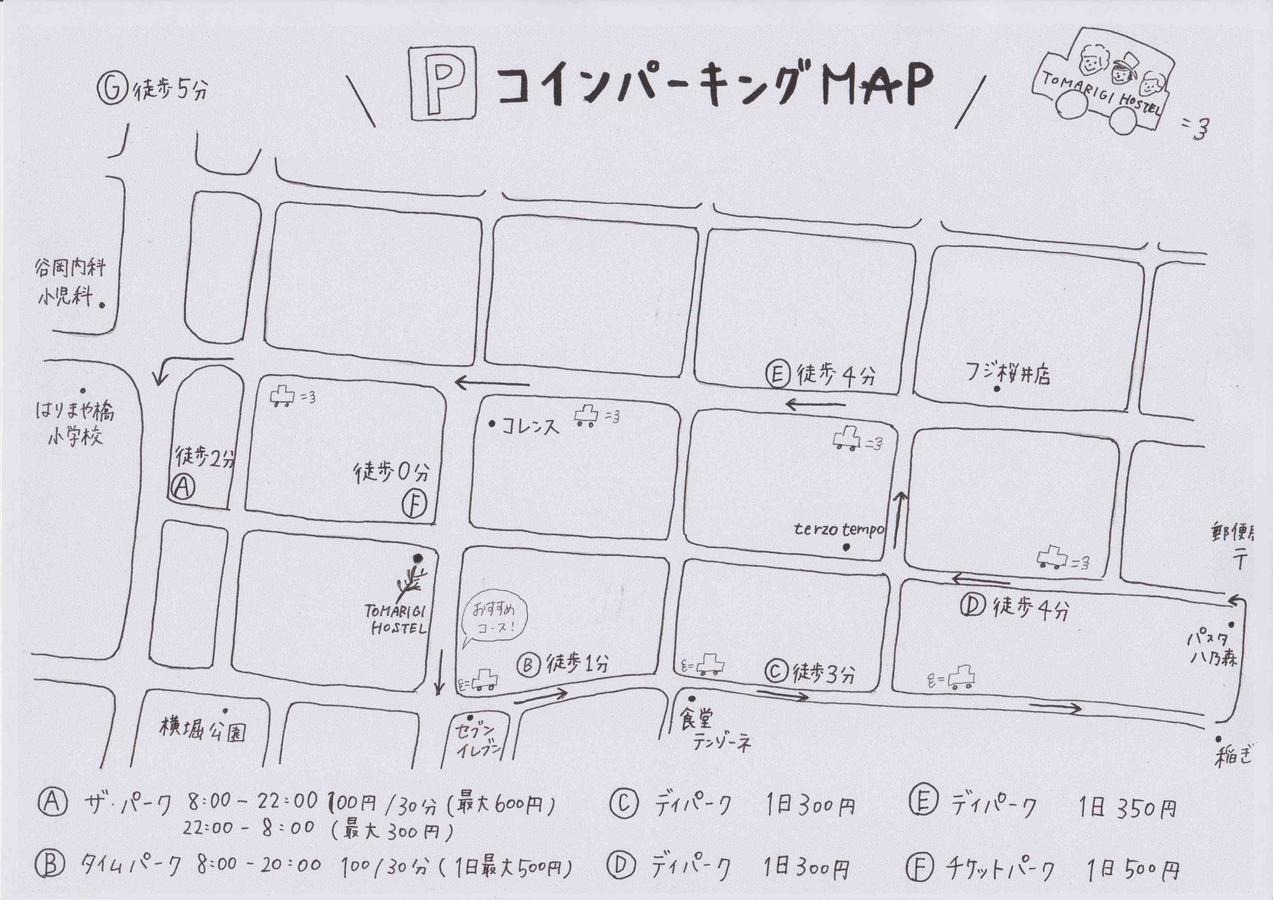 P コインパーキングMAP
TOMARIGI HOSTEL
=3
G 徒歩5分
谷岡内科
小児科
はりまや橋
小学校
徒歩2分
A
=3
徒歩0分
F
コレンス
=3
E 徒歩4分
=3
フジ桜井店
terzo tempo
=3
D 徒歩4分
郵便局
〒
パスタ
八乃森
TOMARIGI
HOSTEL
おすすめ
コース!
B 徒歩1分
C 徒歩3分
横堀公園
セブン
イレブン
食堂
テンゾーネ
稲ぎ
A ザ・パーク 8:00-22:00 100円/30分(最大600円)
22:00-8:00 (最大300円)
B タイムパーク 8:00-20:00 100/30分(1日最大500円)
C デイパーク 1日300円
D デイパーク 1日300円
E デイパーク 1日350円
F チケットパーク 1日500円